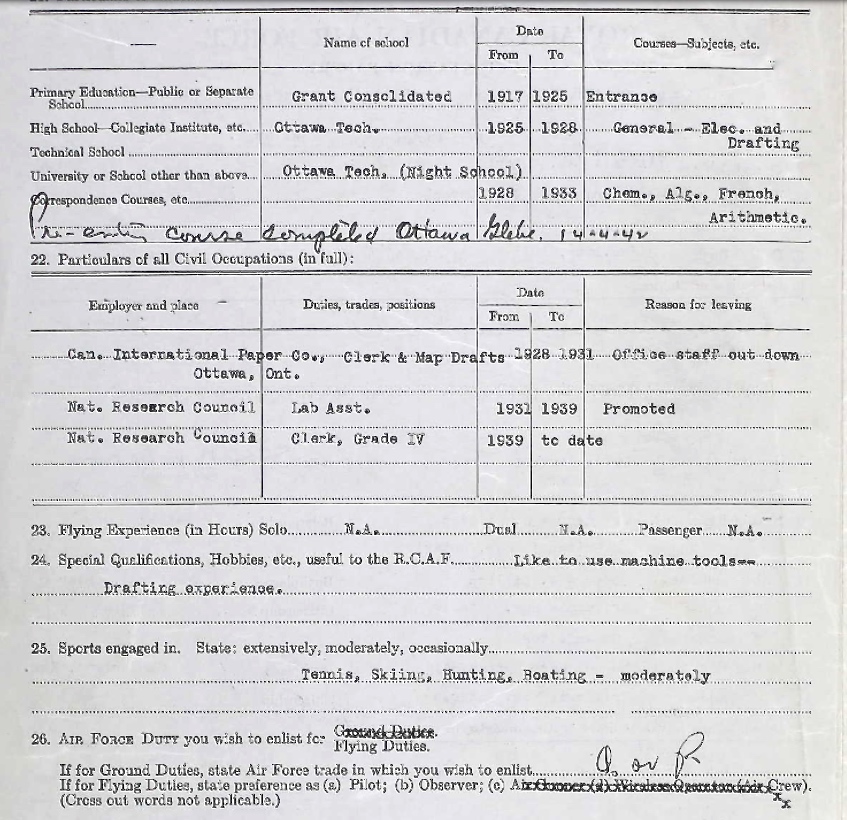 Name of school
Date
From To
Courses—Subjects, etc.
Primary Education—Public or Separate School Grant Consolidated 1917 1925 Entrance
High School—Collegiate Institute, etc. Ottawa Tech. 1925 1928 General - Elec. and
Drafting
Technical School
University or School other than above Ottawa Tech. (Night School)
Correspondence Courses, etc. 1928 1933 Chem., Alg., French,
Arithmetic.
Pre-entry course completed Ottawa Glebe. 14-4-42
22. Particulars of all Civil Occupations (in full):
Employer and place Duties, trades, positions Date Reason for leaving
From To
Can. International Paper Co., Clerk & Map Drafts 1928 1931 Office staff cut down
Ottawa, Ont.
Nat. Research Council Lab Asst. 1931 1939 Promoted
Nat. Research Council Clerk, Grade IV 1939 to date
23. Flying Experience (in Hours) Solo N.A. Dual N.A. Passenger N.A.
24. Special Qualifications, Hobbies, etc., useful to the R.C.A.F. Like to use machine tools--
Drafting experience.
25. Sports engaged in. State: extensively, moderately, occasionally
Tennis, Skiing, Hunting, Boating - moderately
26. AIR FORCE DUTY you wish to enlist for Ground Duties.
Flying Duties.
If for Ground Duties, state Air Force trade in which you wish to enlist O. or P.
If for Flying Duties, state preference as (a) Pilot; (b) Observer; (c) Air Gunner (d) Wireless Operator (Air Crew).
(Cross out words not applicable.)